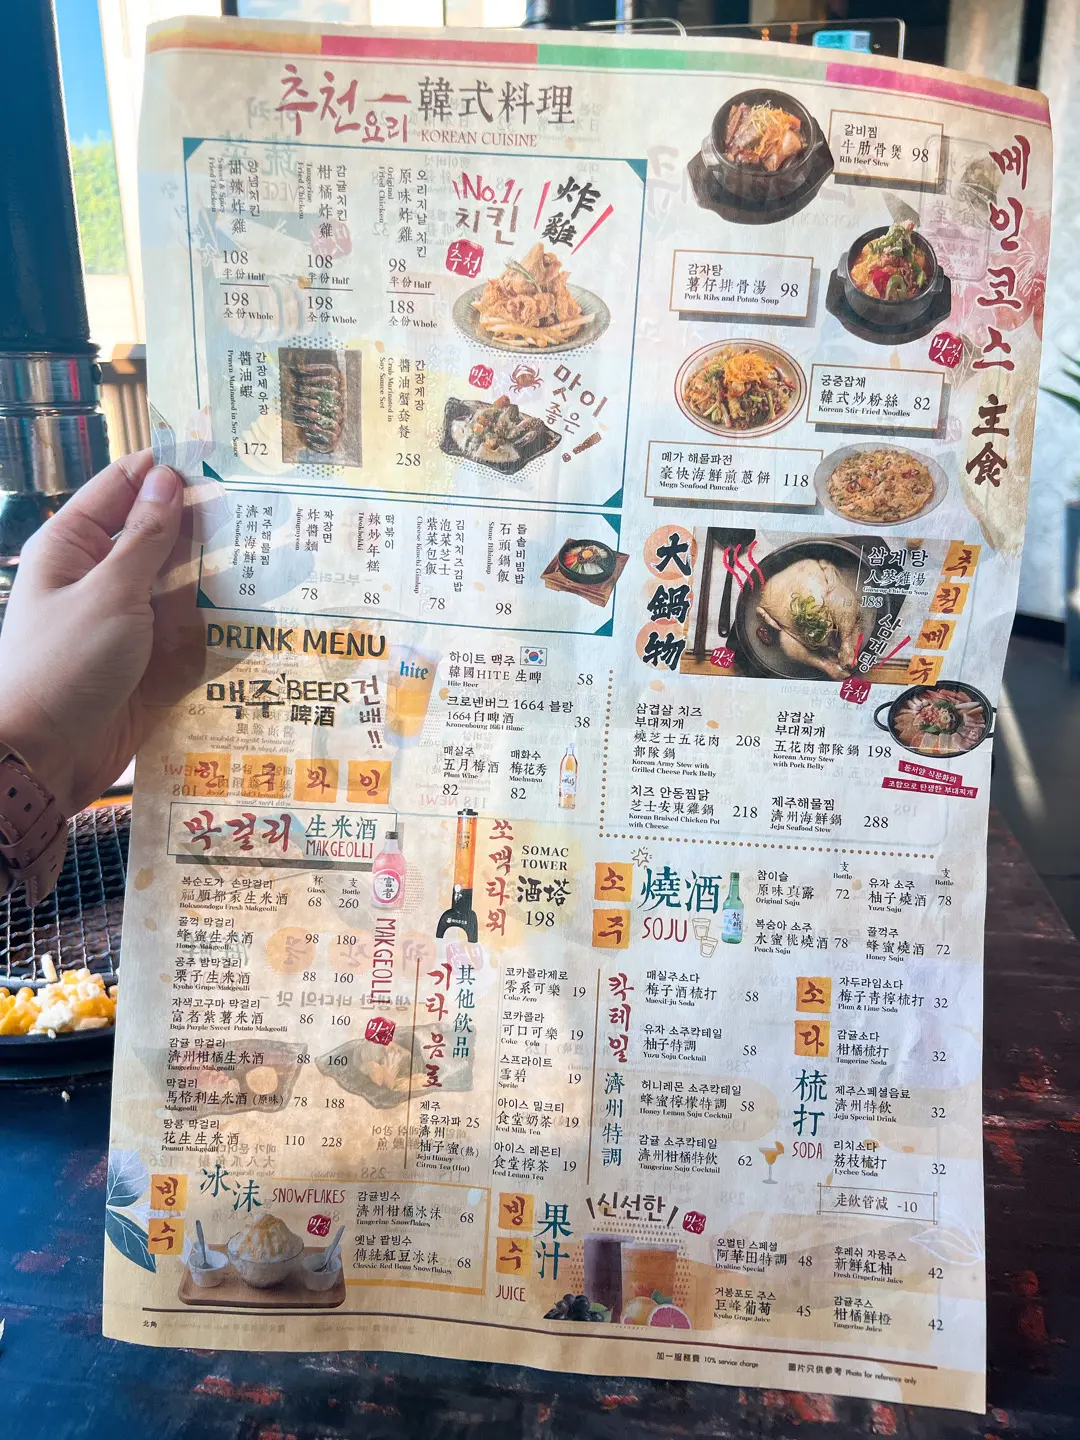 추천요리
韓式料理
KOREAN CUISINE
No.1
치킨
炸雞
추천
오리지날 치킨
原味炸雞
Original
Fried Chicken
98
半份 Half
188
全份 Whole
감귤치킨
柑橘炸雞
Tangerine
Fried Chicken
108
半份 Half
198
全份 Whole
양념치킨
甜辣炸雞
Sweet & Spicy
Fried Chicken
108
半份 Half
198
全份 Whole
간장게장
醬油蟹套餐
Crab Marinated in
Soy Sauce Set
258
간장새우장
醬油蝦
Prawn Marinated in Soy Sauce
172
맛이
좋은
돌솥비빔밥
石頭鍋飯
98
김치치즈김밥
泡菜芝士
紫菜包飯
Cheese Kimchi Gimbap
78
떡볶이
辣炒年糕
88
짜장면
炸醬麵
78
제주해물찜
濟州海鮮湯
Jeju Seafood Soup
88
메인코스
主食
갈비찜
牛肋骨煲 98
Rib Beef Stew
감자탕
薯仔排骨湯 98
Pork Ribs and Potato Soup
궁중잡채
韓式炒粉絲 82
Korean Stir-Fried Noodles
메가 해물파전
豪快海鮮煎蔥餅 118
Mega Seafood Pancake
大鍋物
삼계탕
人參雞湯
Ginseng Chicken Soup
188
삼계탕
추천
추천메뉴
삼겹살 치즈
부대찌개
燒芝士五花肉
部隊鍋 208
Korean Army Stew with
Grilled Cheese Pork Belly
삼겹살
부대찌개
五花肉部隊鍋 198
Korean Army Stew
with Pork Belly
동서양 식문화의
조합으로 탄생한 부대찌개
치즈 안동찜닭
芝士安東雞鍋 218
Korean Braised Chicken Pot
with Cheese
제주해물찜
濟州海鮮鍋 288
Jeju Seafood Stew
DRINK MENU
맥주 BEER
啤酒
건배!!
hite
하이트 맥주
韓國HITE 生啤 58
Hite Beer
크로넨버그 1664 블랑
1664 白啤酒 38
Kronenbourg 1664 Blanc
매실주
五月梅酒
Plum Wine
82
매화수
梅花秀
Maehwasu
82
한국와인
막걸리
生米酒
MAKGEOLLI
杯
Glass
支
Bottle
복순도가 손막걸리
福順都家生米酒 68 260
Boksoondoga Fresh Makgeolli
꿀꺽 막걸리
蜂蜜生米酒 98 180
Honey Makgeolli
공주 밤막걸리
栗子生米酒 88 160
Kyoho Grape Makgeolli
자색고구마 막걸리
富者紫薯米酒 86 160
Buja Purple Sweet Potato Makgeolli
감귤 막걸리
濟州柑橘生米酒 88 160
Tangerine Makgeolli
막걸리
馬格利生米酒 (原味) 78 188
Makgeolli
땅콩 막걸리
花生生米酒 110 228
Peanut Makgeolli
富者
MAKGEOLLI
쏘맥타워
SOMAC
TOWER
酒塔
198
소주
燒酒
SOJU
支
Bottle
참이슬
原味真露 72
Original Soju
유자 소주
柚子燒酒 78
Yuzu Soju
복숭아 소주
水蜜桃燒酒 78
Peach Soju
꿀꺽주
蜂蜜燒酒 72
Honey Soju
支
Bottle
기타음료
其他飲品
제주
꿀유자파 25
濟州
柚子蜜(熱)
Jeju Honey
Citron Tea (Hot)
코카콜라제로
零系可樂 19
Coke Zero
코카콜라
可口可樂 19
Coke Cola
스프라이트
雪碧 19
Sprite
아이스 밀크티
食堂奶茶 19
Iced Milk Tea
아이스 레몬티
食堂檸茶 19
Iced Lemon Tea
칵테일
濟州特調
매실주소다
梅子酒梳打 58
Maesil-ju Soda
유자 소주칵테일
柚子特調 58
Yuzu Soju Cocktail
허니레몬 소주칵테일
蜂蜜檸檬特調 58
Honey Lemon Soju Cocktail
감귤 소주칵테일
濟州柑橘特飲 62
Tangerine Soju Cocktail
소다
梳打
SODA
자두라임소다
梅子青檸梳打 32
Plum & Lime Soda
감귤소다
柑橘梳打 32
Tangerine Soda
제주스페셜음료
濟州特飲 32
Jeju Special Drink
리치소다
荔枝梳打 32
Lychee Soda
走飲管減 -10
빙수
冰沫
SNOWFLAKES
감귤빙수
濟州柑橘冰沫 68
Tangerine Snowflakes
옛날 팥빙수
傳統紅豆冰沫 68
Classic Red Bean Snowflakes
빙수
果汁
JUICE
신선한
오벌틴 스페셜
阿華田特調 48
Ovaltine Special
후레쉬 자몽주스
新鮮紅柚 42
Fresh Grapefruit Juice
거봉포도 주스
巨峰葡萄 45
Kyoho Grape Juice
감귤주스
柑橘鮮橙 42
Tangerine Juice
北角
加一服務費 10% service charge
圖片只供參考 Photo for reference only